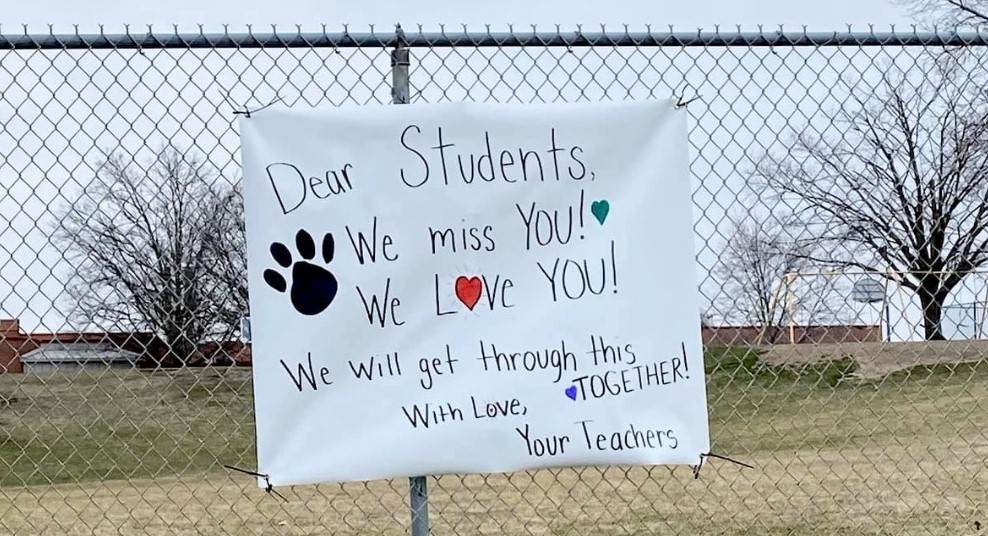 Dear Students,
We miss YOU!
We Love YOU!
We will get through this
TOGETHER!
With Love,
Your Teachers